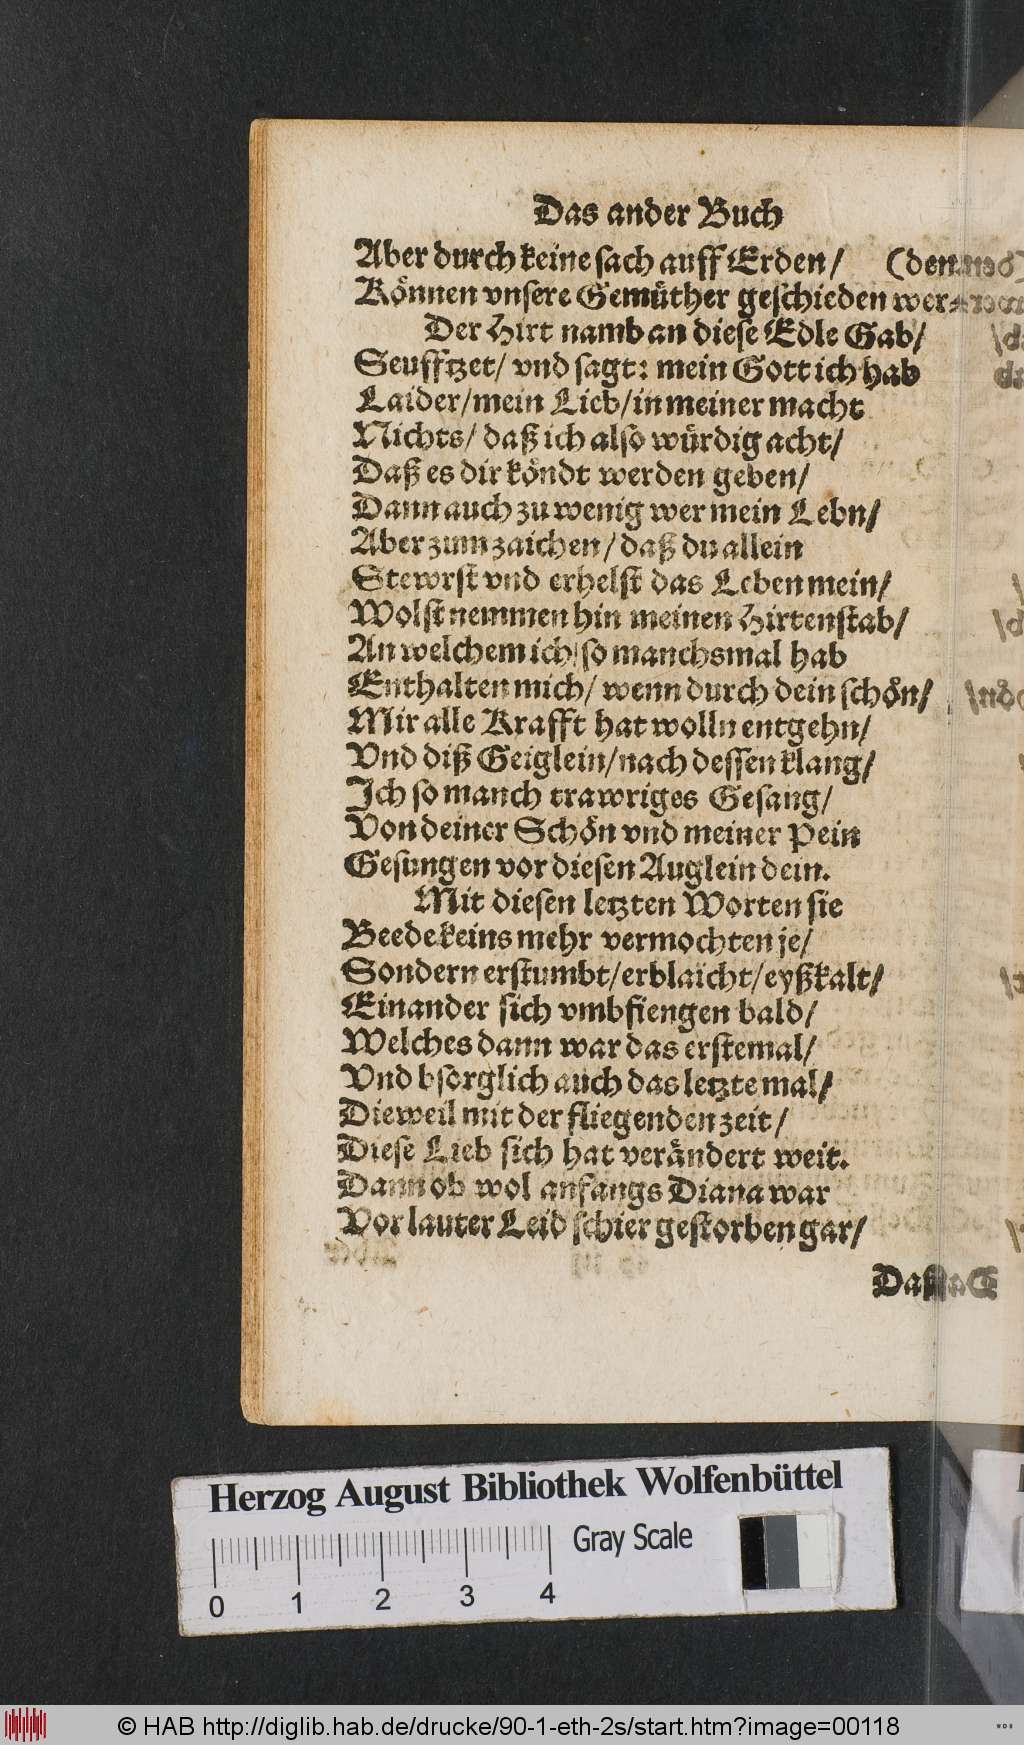 Das ander Buch
Aber durch keine sach auff Erden/ (den.
Können vnsere Gemüther geschieden wer-
Der Hirt namb an diese Edle Gab/
Seufftzet/ vnd sagt: mein Gott ich hab
Laider/mein Lieb/in meiner macht
Nichts/ daß ich also würdig acht/
Daß es dir köndt werden geben/
Dann auch zu wenig wer mein Lebn/
Aber zum zaichen/ daß du allein
Stewrst vnd erhelst das Leben mein/
Wolst nemmen hin meinen Hirtenstab/
An welchem ich/so manchsmal hab
Enthalten mich/ wenn durch dein schön/
Mir alle Krafft hat wolln entgehn/
Vnd diß Geiglein/nach dessen klang/
Ich so manch trawriges Gesang/
Von deiner Schön vnd meiner Pein
Gesungen vor diesen Auglein dein.
Mit diesen letzten Worten sie
Beede keins mehr vermochten je/
Sondern erstumbt/erblaicht/eyßkalt/
Einander sich vmbfiengen bald/
Welches dann war das erstemal/
Vnd bsorglich auch das letzte mal/
Dieweil mit der fliegenden zeit/
Diese Lieb sich hat verändert weit.
Dann ob wol anfangs Diana war
Vor lauter Leid schier gestorben gar/
Daß
Herzog August Bibliothek Wolfenbüttel
Gray Scale
0 1 2 3 4
© HAB http://diglib.hab.de/drucke/90-1-eth-2s/start.htm?image=00118